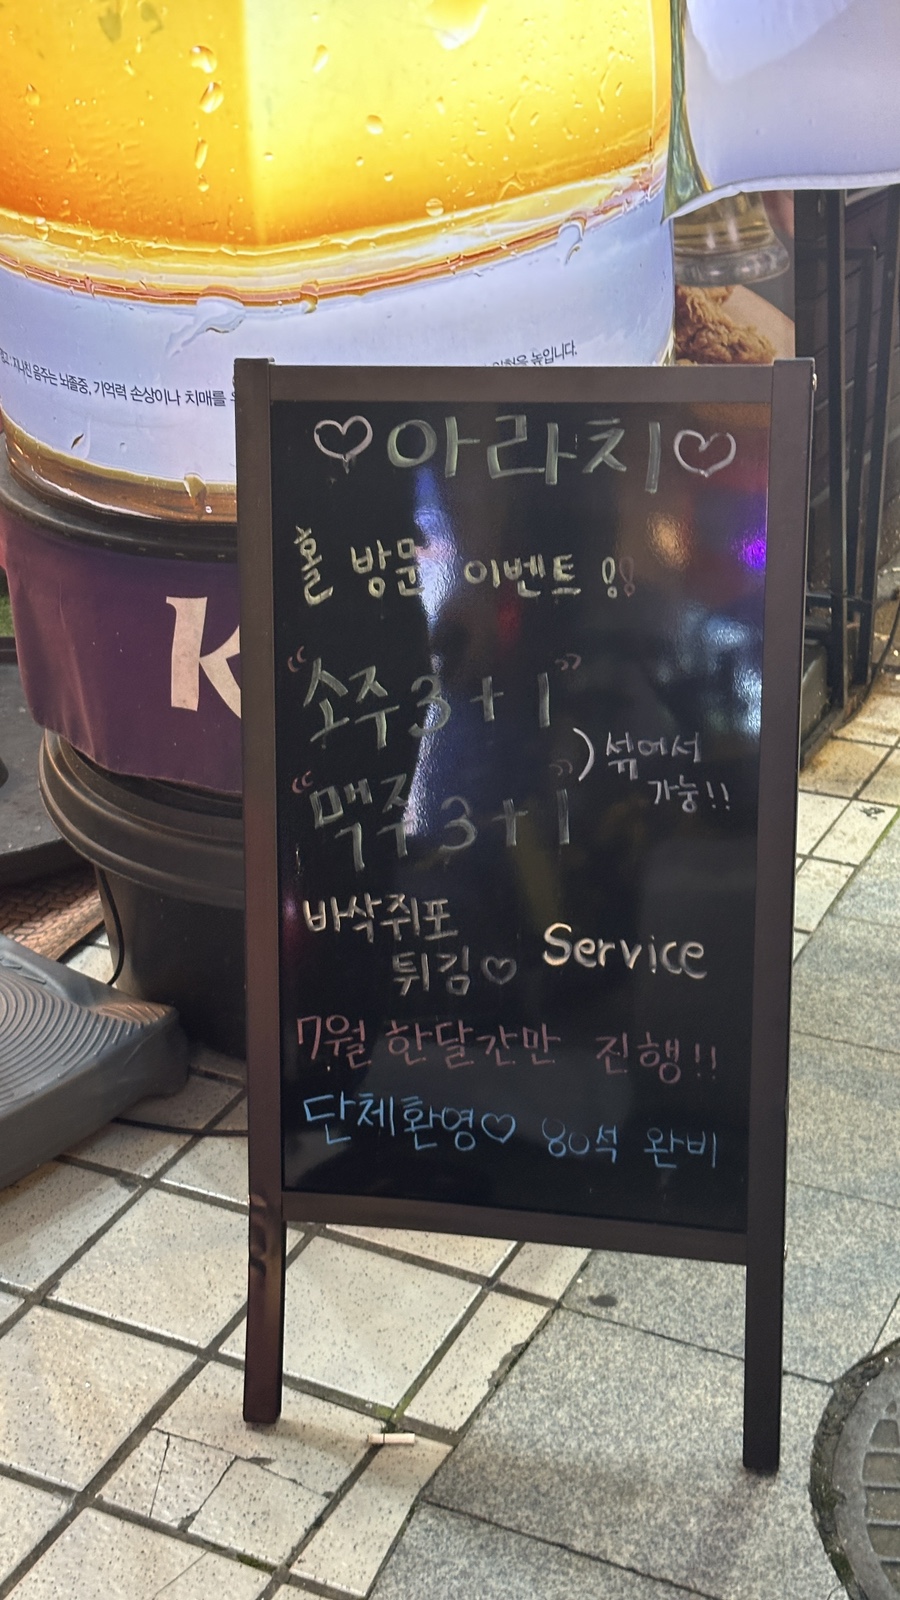 지나친 음주는 뇌졸중, 기억력 손상이나 치매를
높입니다.
K
♡아라치♡
홀 방문 이벤트!!
“소주 3+1”
“맥주 3+1”
) 섞어서
가능!!
바삭쥐포
튀김♡ Service
7월 한달간만 진행!!
단체환영♡ 80석 완비